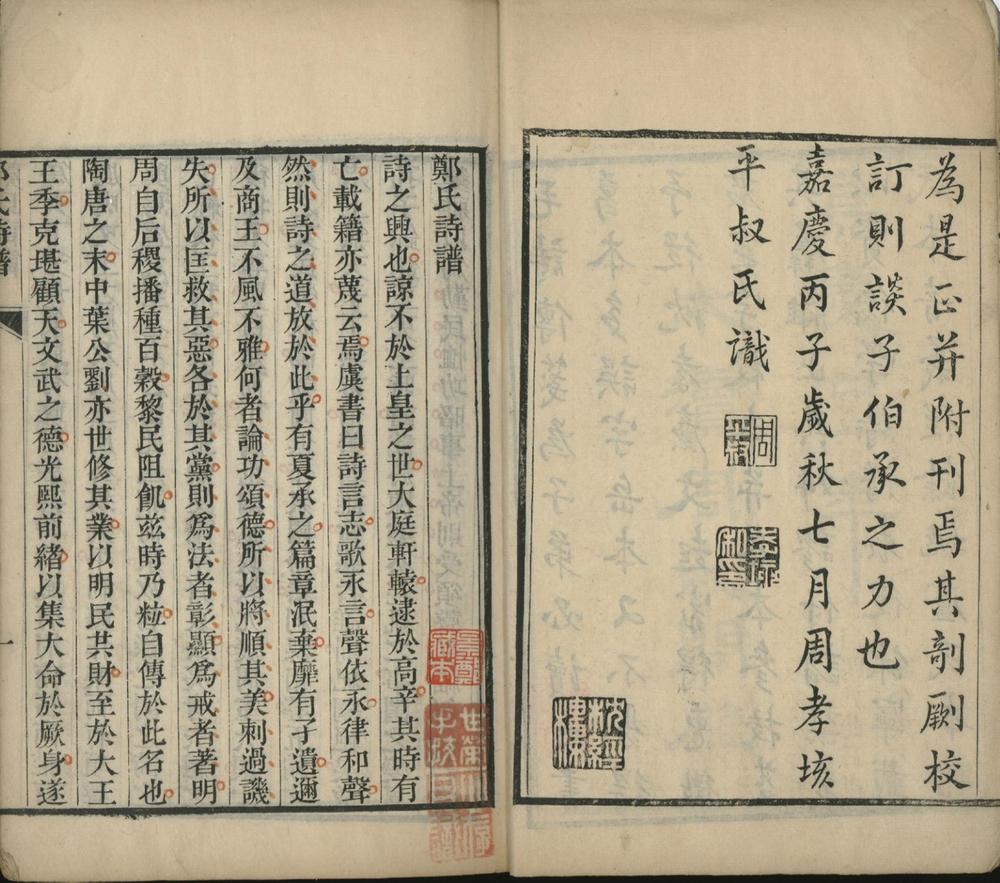 為是正并附刊焉其剞劂校
訂則談子伯承之力也
嘉慶丙子歲秋七月周孝垓
平叔氏識
枕經樓
鄭氏詩譜
詩之興也諒不於上皇之世大庭軒轅逮於高辛其時有
亡載籍亦蔑云焉虞書曰詩言志歌永言聲依永律和聲
然則詩之道放於此乎有夏承之篇章泯棄靡有孑遺邇
及商王不風不雅何者論功頌德所以將順其美刺過譏
失所以匡救其惡各於其黨則爲法者彰顯爲戒者著明
周自后稷播種百穀黎民阻飢茲時乃粒自傳於此名也
陶唐之末中葉公劉亦世修其業以明民共財至於大王
王季克堪顧天文武之德光熙前緒以集大命於厥身遂
鄭氏詩譜
一